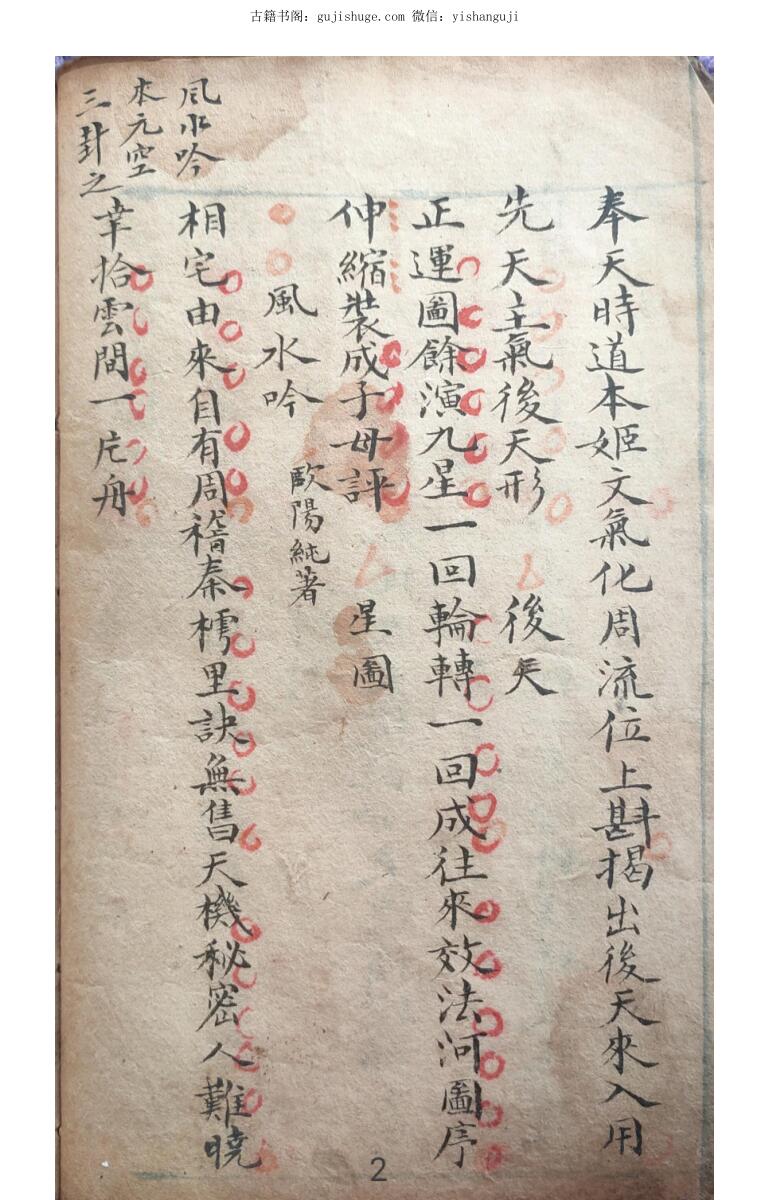 古籍书阁: gujishuge.com 微信: yishanguji
奉天時道本姬文氣化周流位上斟揭出後天來入用
先天主氣後天形 後天
正運圖餘演九星一回輪轉一回成往來效法河圖序
伸縮裝成子母評 星圖
風水吟 歐陽純著
相宅由來自有周禠秦樗里訣無售天機秘密人難曉
幸拾雲間一片舟
風水吟
本元空
三封之
2